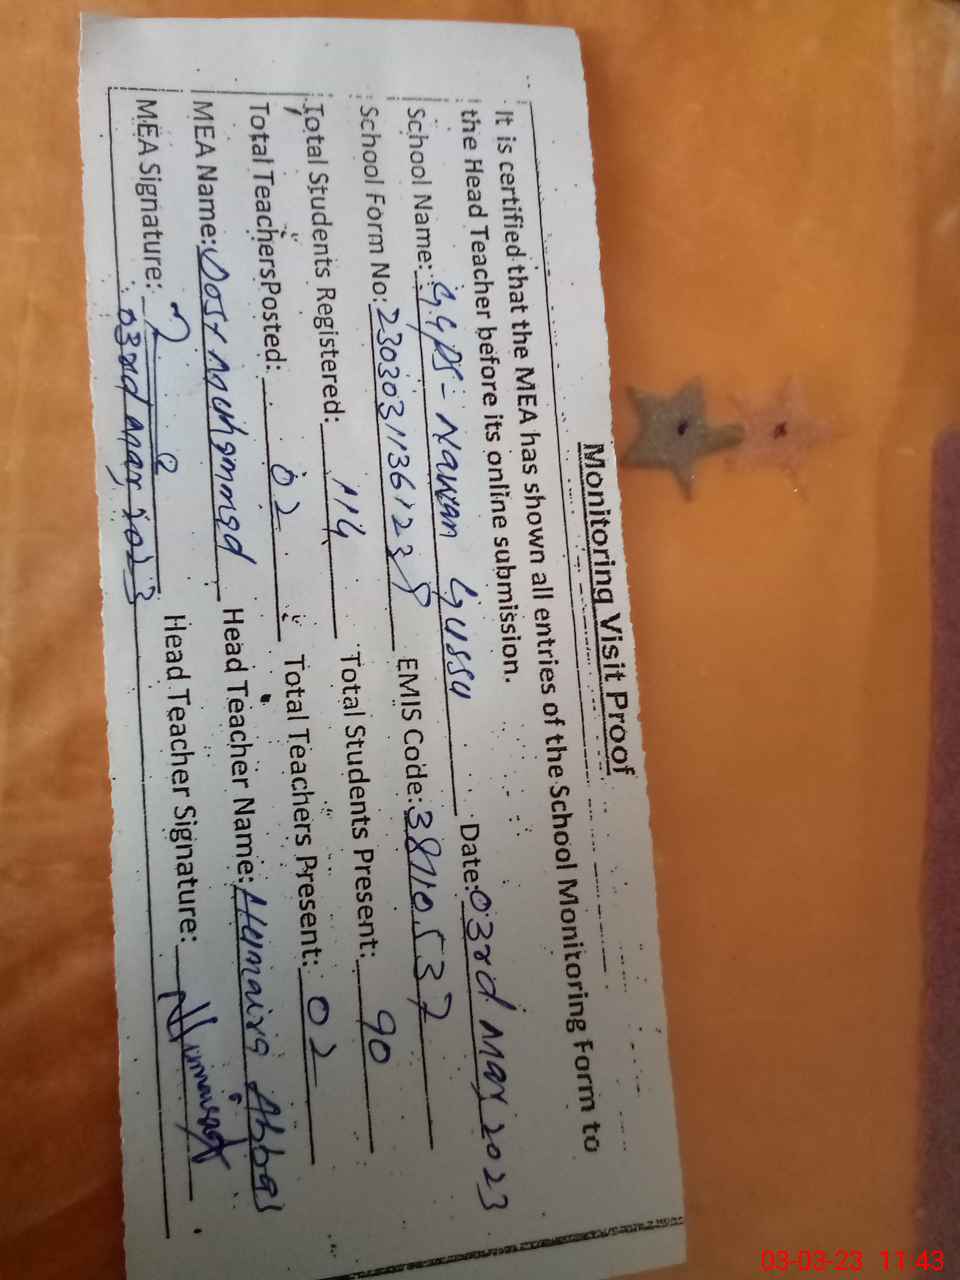 Monitoring Visit Proof
It is certified that the MEA has shown all entries of the School Monitoring Form to
the Head Teacher before its online submission.
School Name: GGPS - Nawan Gussa Date: 03rd Mar, 2023
School Form No: EMIS Code: 38110537
Total Students Registered: 114 Total Students Present: 90
Total Teachers Posted: 02 Total Teachers Present: 02
MEA Name: Dost Muhammad Head Teacher Name: Humaira Abbas
MEA Signature: Head Teacher Signature:
03rd Mar, 2023
03-03-23 11:43